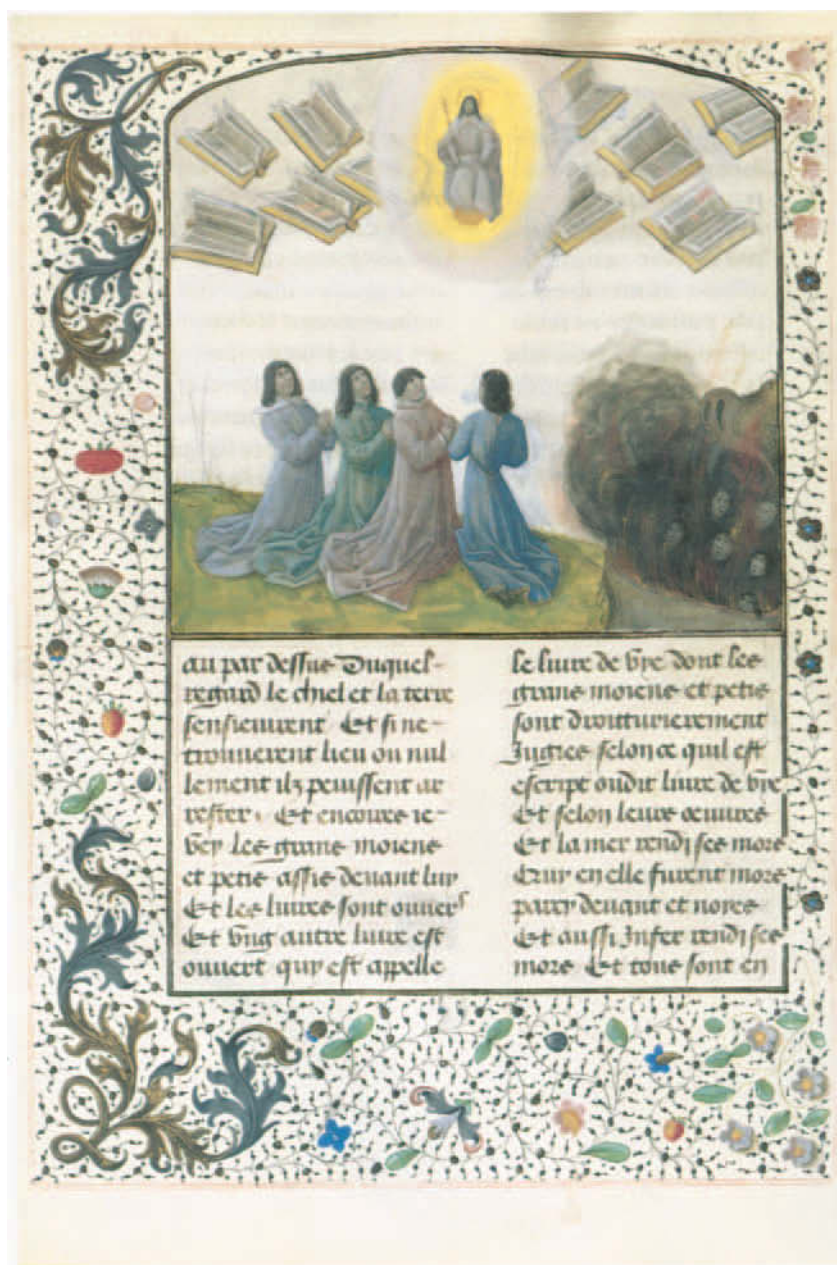 au par dessus Duquel-
regard le chiel et la terre
sensieuvent Et si ne-
trouverent lieu ou nul
lement ilz peuissent ar
rester. Et encoires ie-
vey les grans moiens
et petis assis devant luy
Et les livres sont ouvers
Et vng autre livre est
ouvert quy est appelle
le livre de vye dont les
grans moiens et petis
sont droitturierement
Jugies selon ce quil est
escript oudit livre de vye
Et selon leurs oeuvres
Et la mer rendi ses mors
Ceux en elle furent mors
par devant et noyes
Et aussi Infer rendi ses
mors Et tous sont en